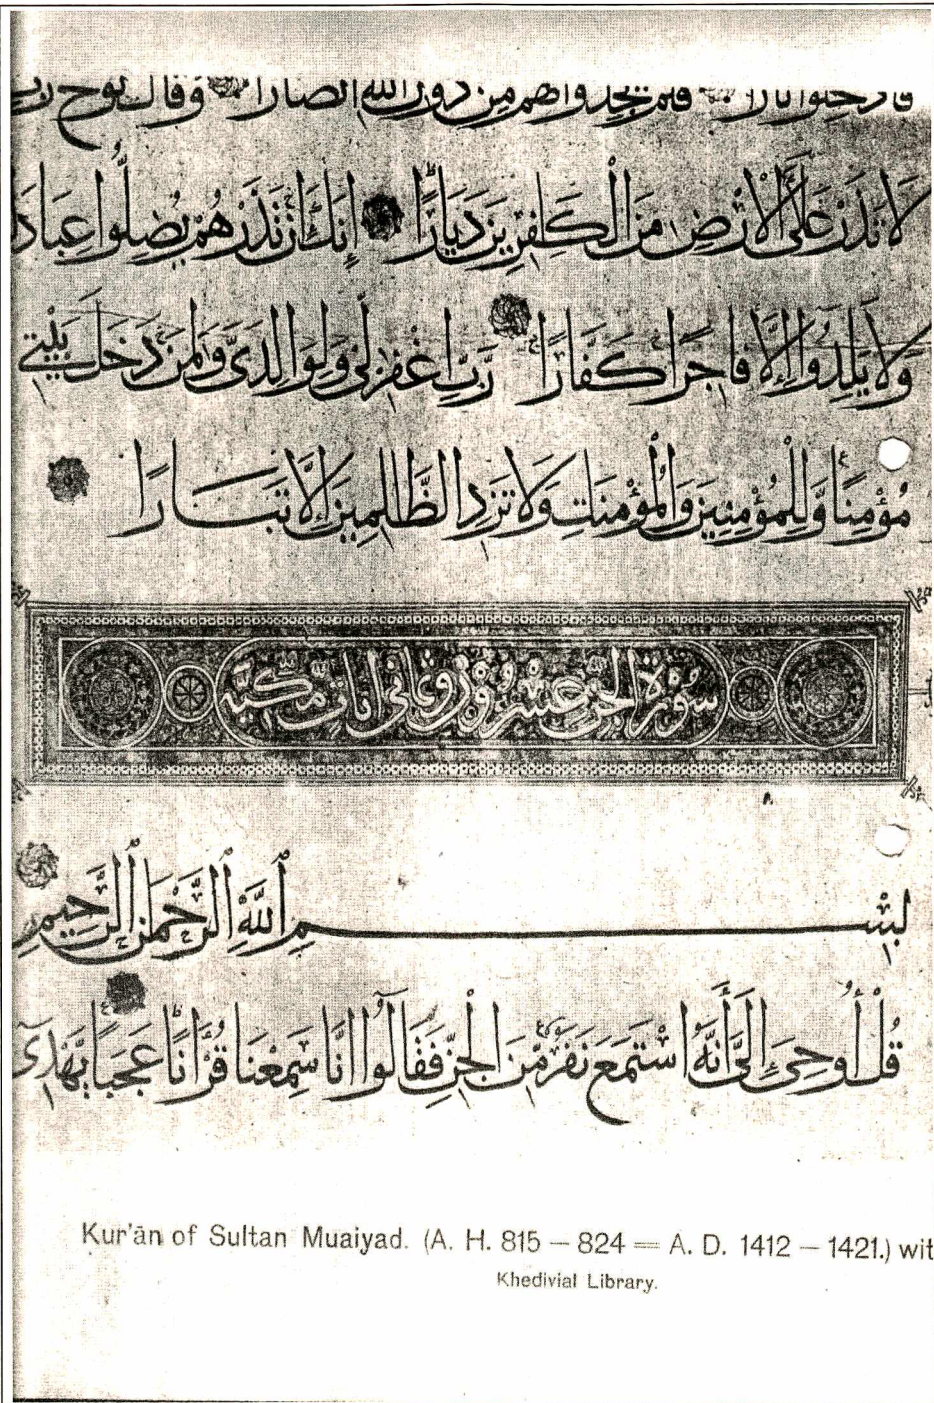 فادخلوا نارا فلم يجدوا لهم من دون الله انصارا وقال نوح رب
لَا تَذَرْ عَلَى الْأَرْضِ مِنَ الْكَفِرِينَ دَيَّارًا إِنَّكَ إِنْ تَذَرْهُمْ يُضِلُّوا عِبَادَ
وَلَا يَلِدُوا إِلَّا فَاجِرًا كَفَّارًا رَبِّ اغْفِرْ لِي وَلِوَالِدَيَّ وَلِمَنْ دَخَلَ بَيْتِيَ
مُؤْمِنًا وَّلِلْمُؤْمِنِينَ وَالْمُؤْمِنَتِ وَلَا تَزِدِ الظَّالِمِينَ إِلَّا تَبَارًا
سورة الجن عشرون وثماني ايات مكية
بِسْمِ اللَّهِ الرَّحْمَنِ الرَّحِيمِ
قُلْ أُوحِيَ إِلَيَّ أَنَّهُ اسْتَمَعَ نَفَرٌ مِّنَ الْجِنِّ فَقَالُوا إِنَّا سَمِعْنَا قُرْآنًا عَجَبًا يَهْدِي
Kur'ān of Sultan Muaiyad. (A. H. 815 – 824 = A. D. 1412 – 1421.) wit
Khedivial Library.